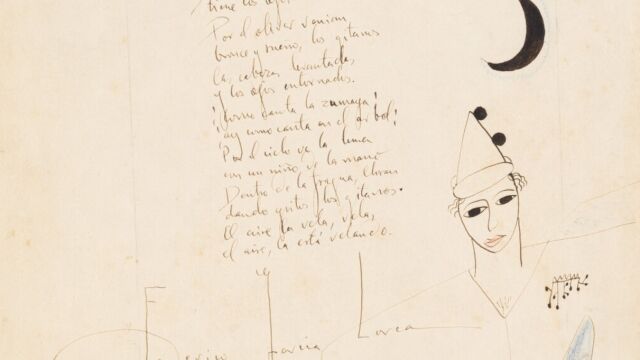 tiene los ojos
Por el olivar venían,
bronce y sueño, los gitanos
las cabezas levantadas
y los ojos entornados.
¡Como canta la zumaya!
¡ay como canta en el arbol!
Por el cielo va la luna
con un niño de la mano
Dentro de la fragua, lloran
dando gritos los gitanos.
El aire la vela, vela,
el aire, la está velando.
Federico García Lorca